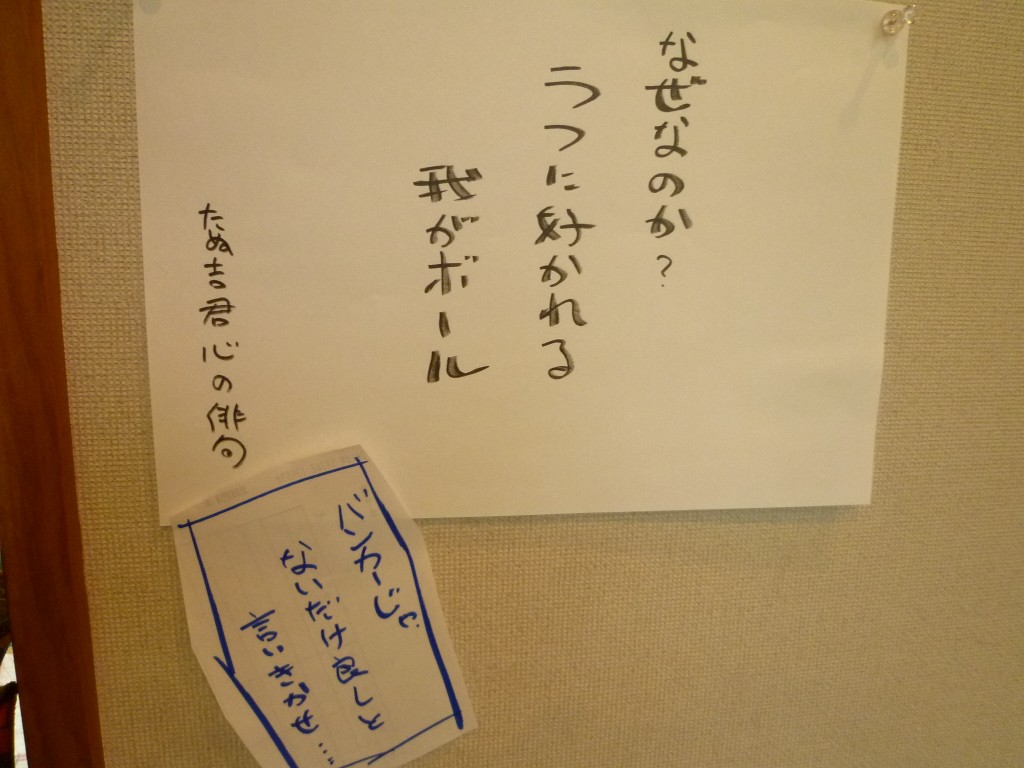 なぜなのか?
うつに好かれる
我がボール
たぬ吉君心の俳句
バンカーじゃ
ないだけ良しと
言いきかせ…